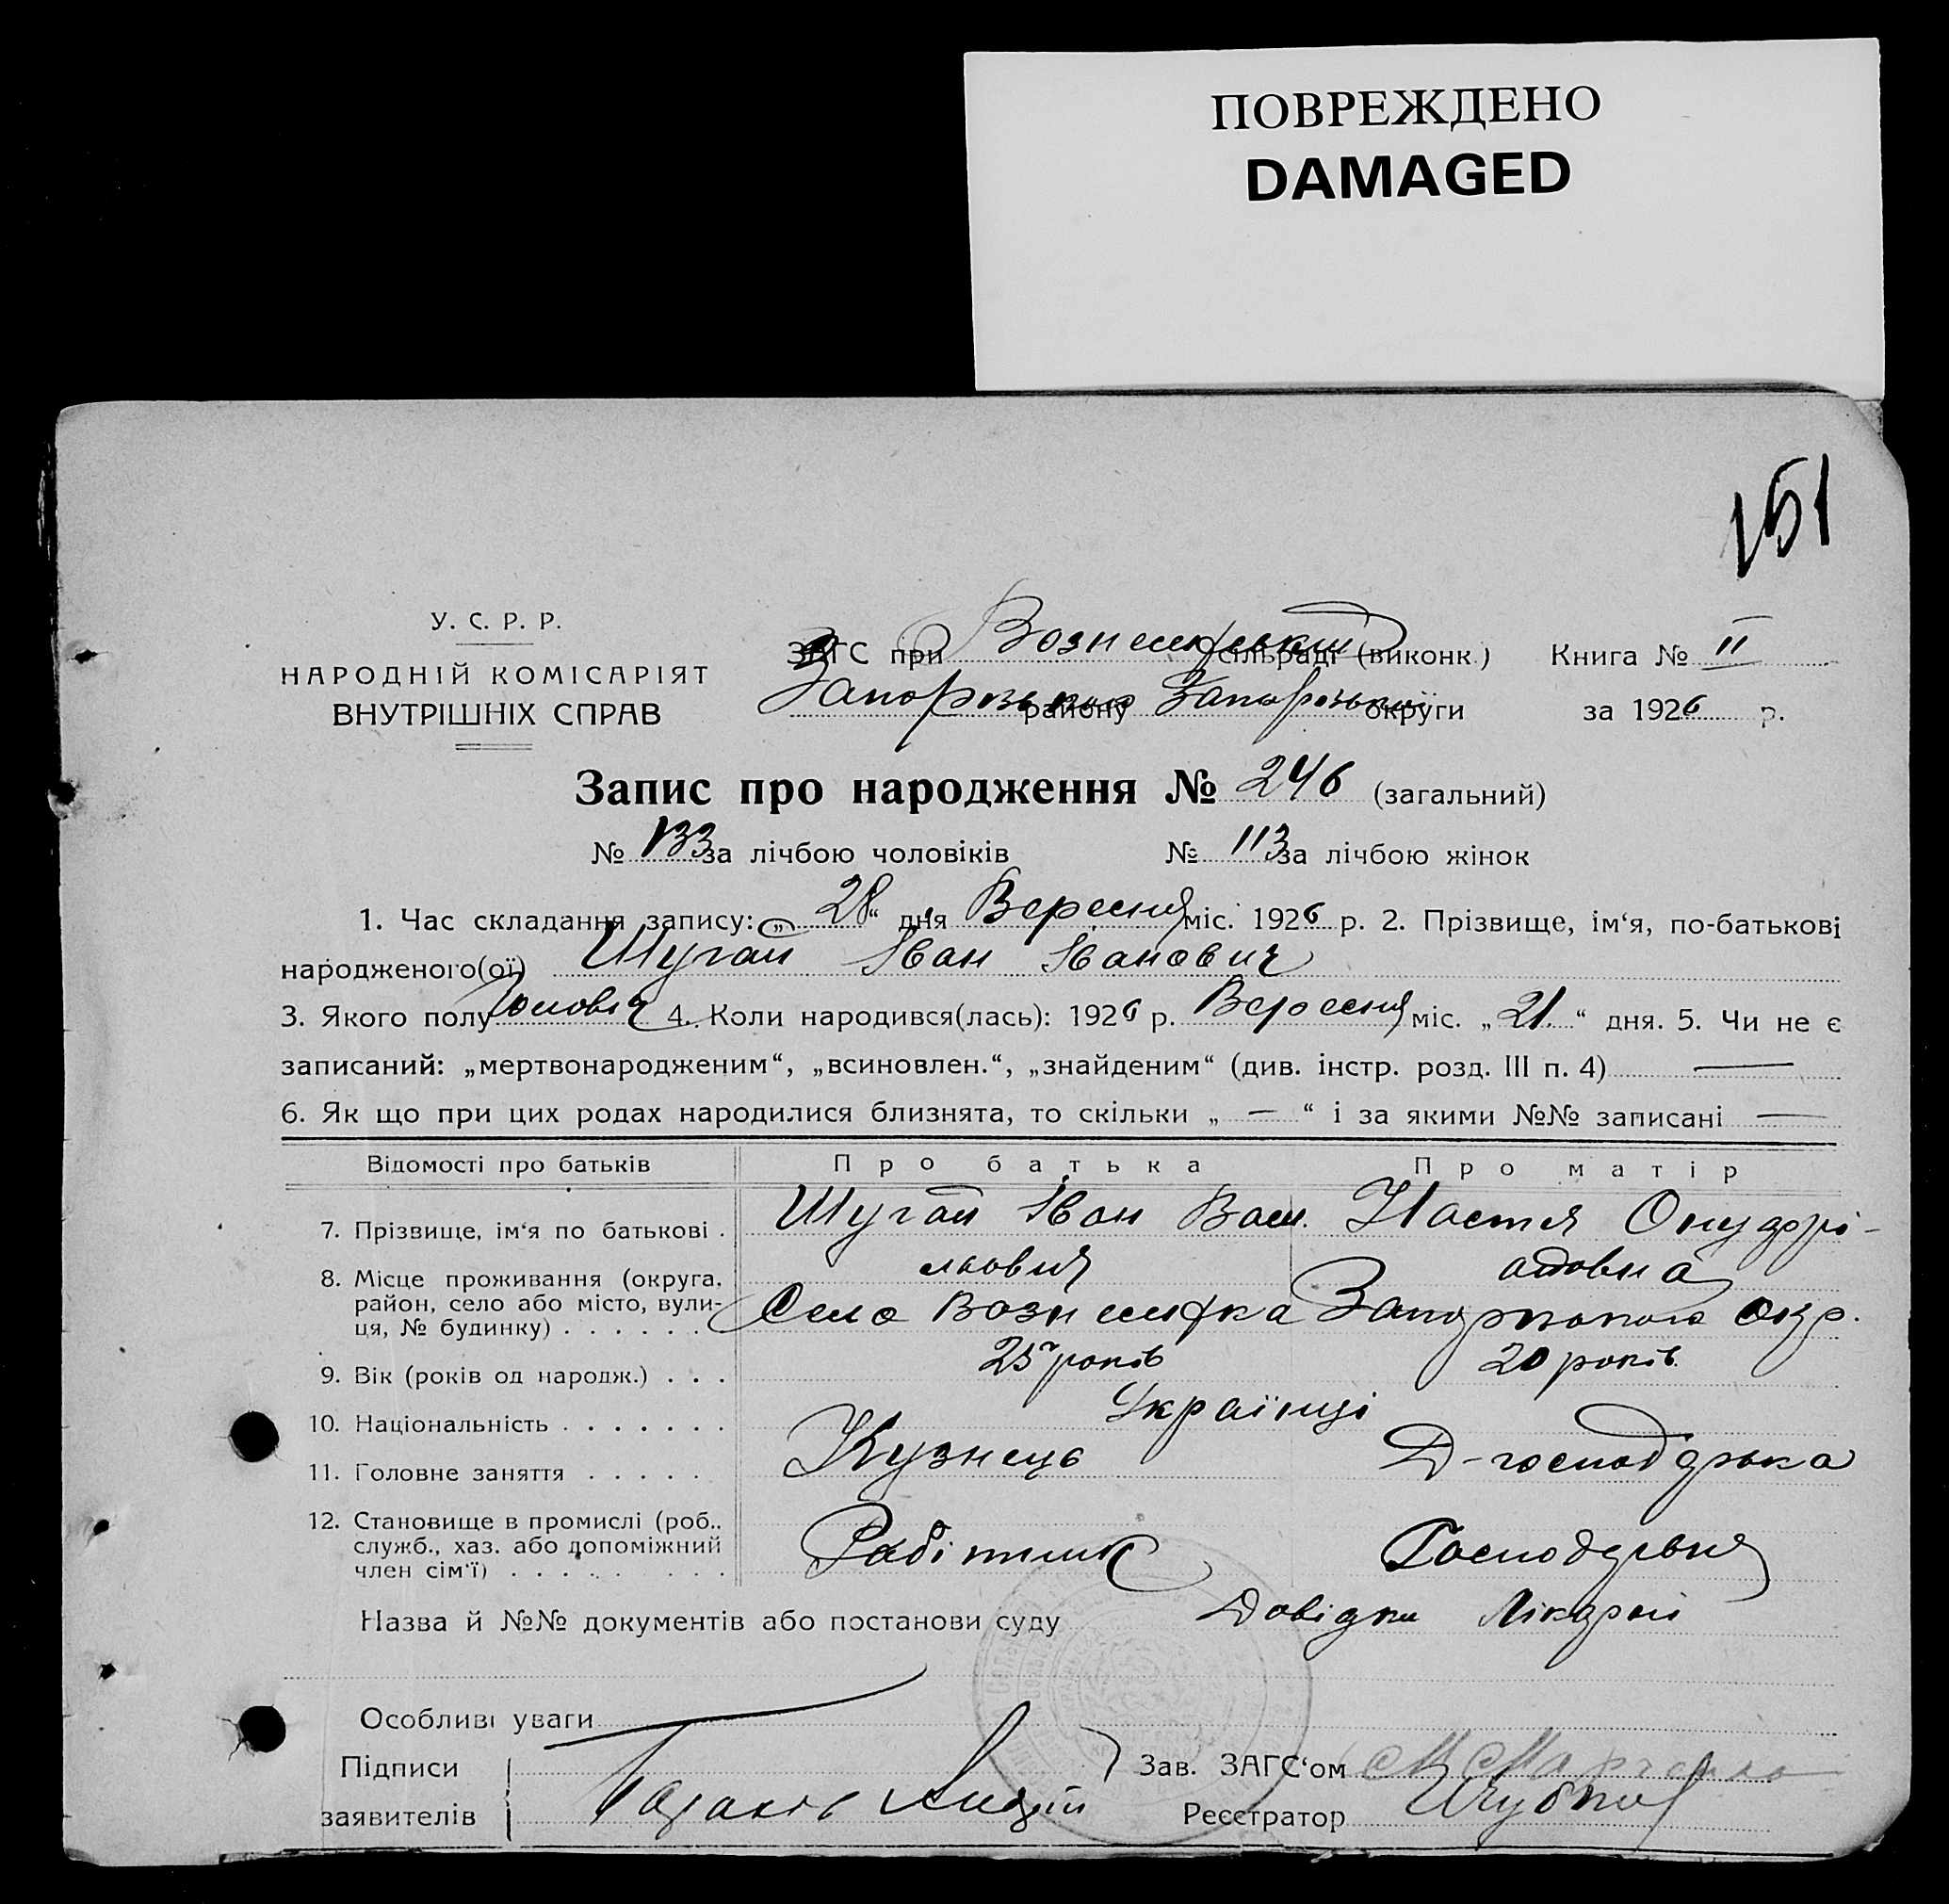 ПОВРЕЖДЕНО
DAMAGED
151
У. С. Р. Р.
НАРОДНІЙ КОМІСАРІЯТ
ВНУТРІШНІХ СПРАВ
ЗАГС при Вознесенський сільраді (виконк.) Книга № II
Запорізького району Запорізької округи за 1926 р.
Запис про народження № 246 (загальний)
№ 133 за лічбою чоловіків № 113 за лічбою жінок
1. Час складання запису: „28“ дня Вересня міс. 1926 р. 2. Прізвище, ім‘я, по-батькові
народженого(ої) Шугай Іван Іванович
3. Якого полу Чоловіч 4. Коли народився(лась): 1926 р. Вересня міс. „21.“ дня. 5. Чи не є
записаний: „мертвонародженим“, „всиновлен.“, „знайденим“ (див. інстр. розд. III п. 4) —
6. Як що при цих родах народилися близнята, то скільки „ — “ і за якими №№ записані —
Відомості про батьків Про батька Про матір
7. Прізвище, ім‘я по батькові . Шугай Іван Васи. Настя Онуфрі-
льович
8. Місце проживання (округа, район, село або місто, вули-
ця, № будинку) . . . . . . Село Вознесенка Запорізького окр.
9. Вік (років од народж.) . . . 25 років 20 років
10. Національність . . . . . . . Українці
11. Головне заняття . . . . . Кузнець Д-господарька
12. Становище в промислі (роб.,
служб., хаз. або допоміжний
член сім‘ї) . . . . . . . . Робітник
Назва й №№ документів або постанови суду Довідка Лікарні
Особливі уваги
Підписи Зав. ЗАГС‘ом
заявителів Реєстратор